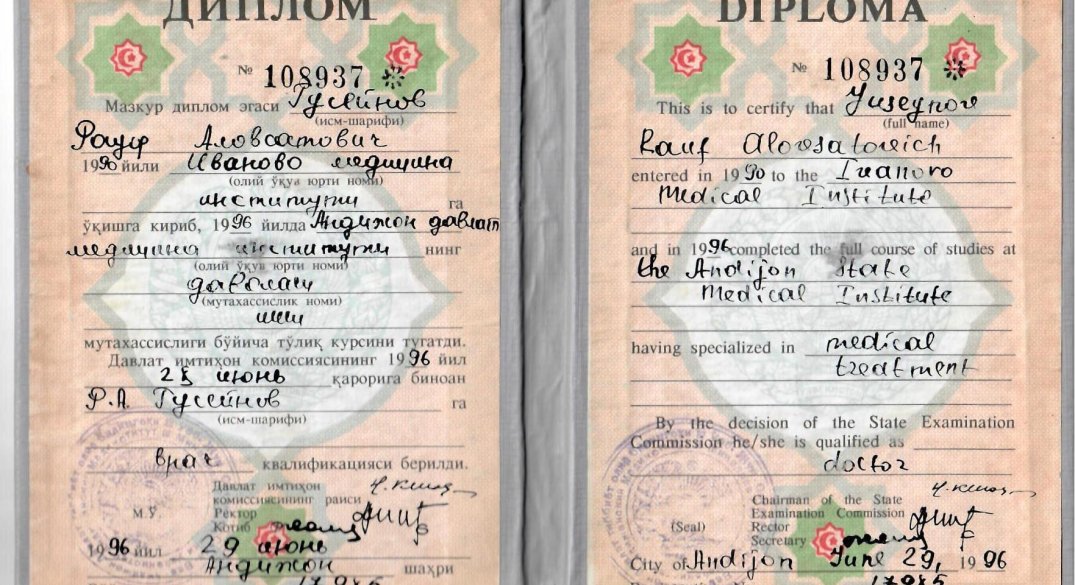 ДИПЛОМ
№ 108937
Мазкур диплом эгаси Гусейнов
(исм-шарифи)
Рауф Аловсатович
1990 йили Иваново медицина
(олий ўқув юрти номи)
институти га
ўқишга кириб, 1996 йилда Андижон давлат
медицина институти нинг
(олий ўқув юрти номи)
даволаш
(мутахассислик номи)
иши
мутахассислиги бўйича тўлиқ курсини тугатди.
Давлат имтиҳон комиссиясининг 1996 йил
июнь қарорига биноан
Р.А. Гусейнов га
(исм-шарифи)
врач квалификацияси берилди.
Давлат имтиҳон
комиссиясининг раиси
М.Ў. Ректор
Котиб
1996 йил 29 июнь
Андижон шаҳри
DIPLOMA
№ 108937
This is to certify that Yuseynov
(full name)
Rauf Alovsatovich
entered in 1990 to the Ivanovo
Medical Institute
and in 1996 completed the full course of studies at
the Andijon State
Medical Institute
having specialized in medical
treatment
By the decision of the State Examination
Commission he/she is qualified as
doctor
Chairman of the State
Examination Commission
(Seal) Rector
Secretary
City of Andijon June 29, 1996